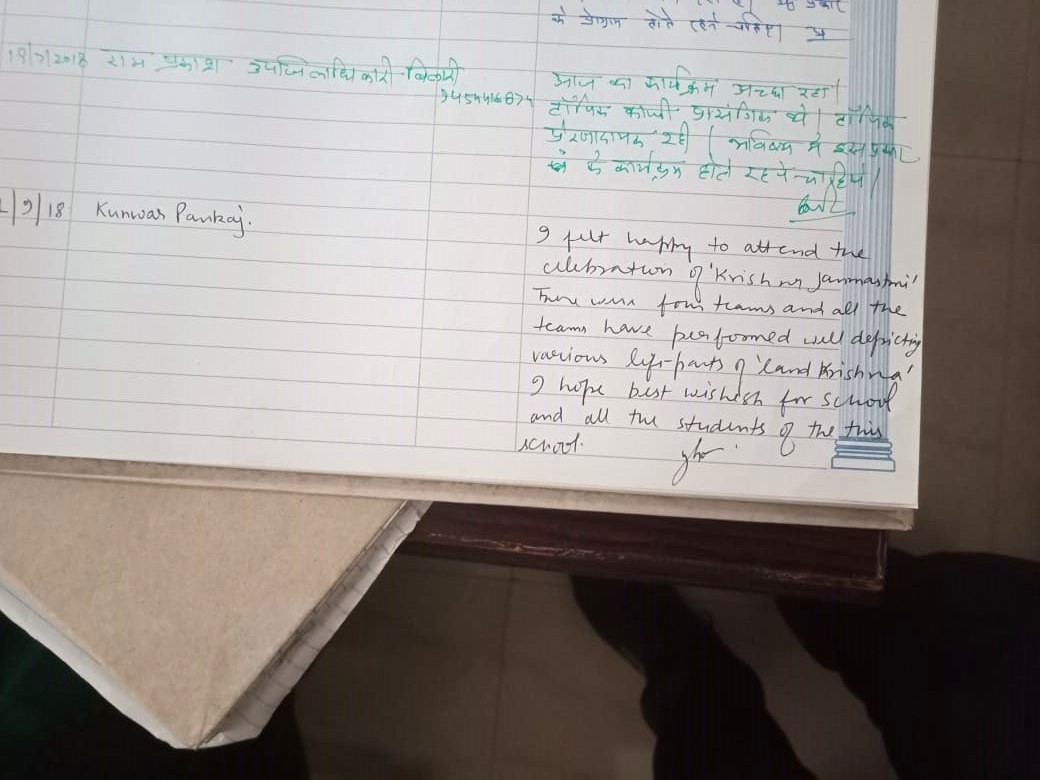 के प्रोग्राम होते रहने चाहिए।
18/7/2018 राम प्रकाश उपजिलाधिकारी-बिलारी
आज का कार्यक्रम अच्छा रहा।
टॉपिक काफी प्रासंगिक थे। टॉपिक
प्रेरणादायक रही। भविष्य में इस प्रकार
के कार्यक्रम होते रहने चाहिये।
/9/18 Kunwar Pankaj.
I felt happy to attend the
celebration of 'Krishna Janmastmi'
There were four teams and all the
teams have performed well depicting
various life-parts of 'Lord Krishna'
I hope best wishesh for school
and all the students of the this
school.